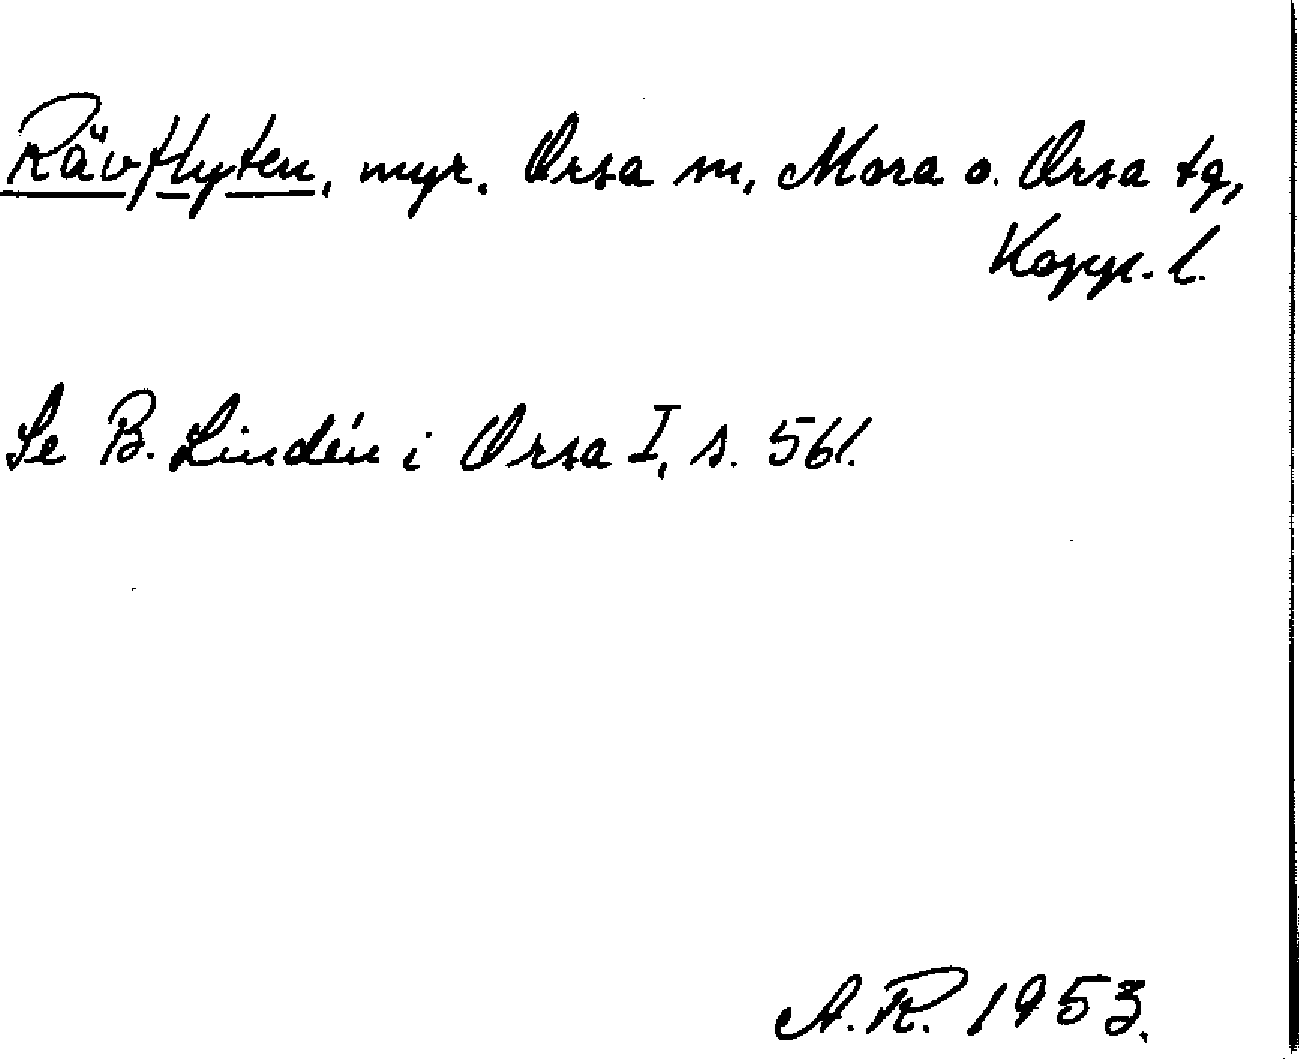 Rävflyten, myr. Orsa sn, Mora o. Orsa tg,
Kopp. l.
Se B. Lindén i Orsa I, s. 561.
A.R. 1953.